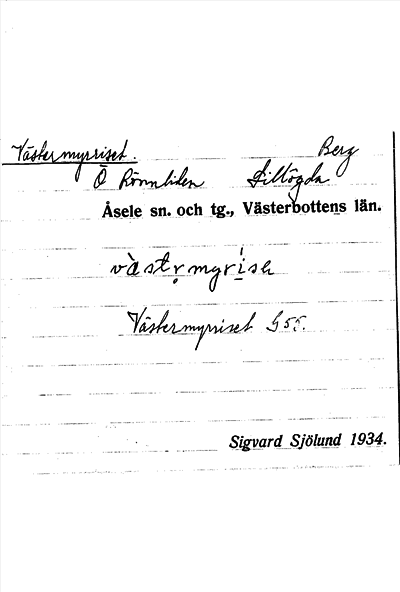 Västermyrriset. Berg
Ö Rönnliden Lillögda
Åsele sn. och tg., Västerbottens län.
Västermyrriset G 55.
Sigvard Sjölund 1934.